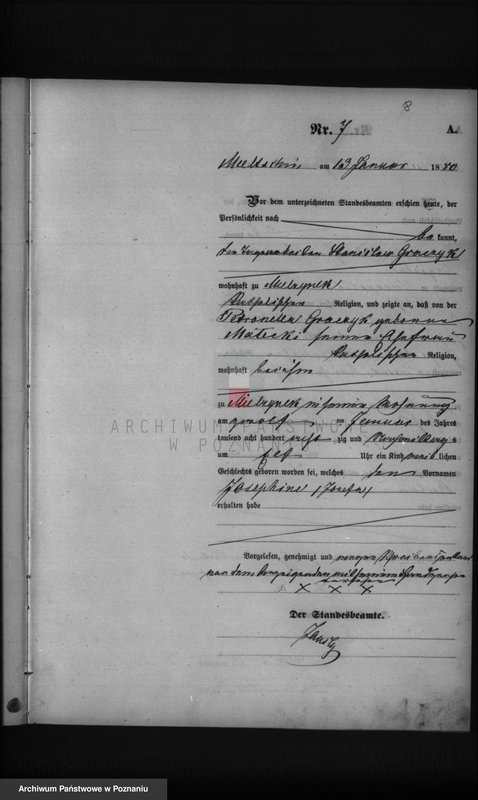 8
Nr. 7 A.
am 13 Januar 1880
Vor dem unterzeichneten Standesbeamten erschien heute, der
Persönlichkeit nach
be kannt,
Stanislaw Graczyk
wohnhaft zu Mielzynek
Katholischer Religion, und zeigte an, daß von der
Petronella Graczyk geborene
seiner Ehefrau
Katholischer Religion,
wohnhaft bei ihm
zu Mielzynek in seiner Wohnung
am Januar des Jahres
tausend acht hundert acht zig und
um Uhr ein Kind weib lichen
Geschlechts geboren worden sei, welches den Vornamen
Josephine (Josefa)
erhalten habe
ARCHIWUM PAŃSTWOWE
W POZNANIU
Vorgelesen, genehmigt und wegen
von dem Anzeigenden mit seinem Handzeichen
versehen
x x x
Der Standesbeamte.
Archiwum Państwowe w Poznaniu